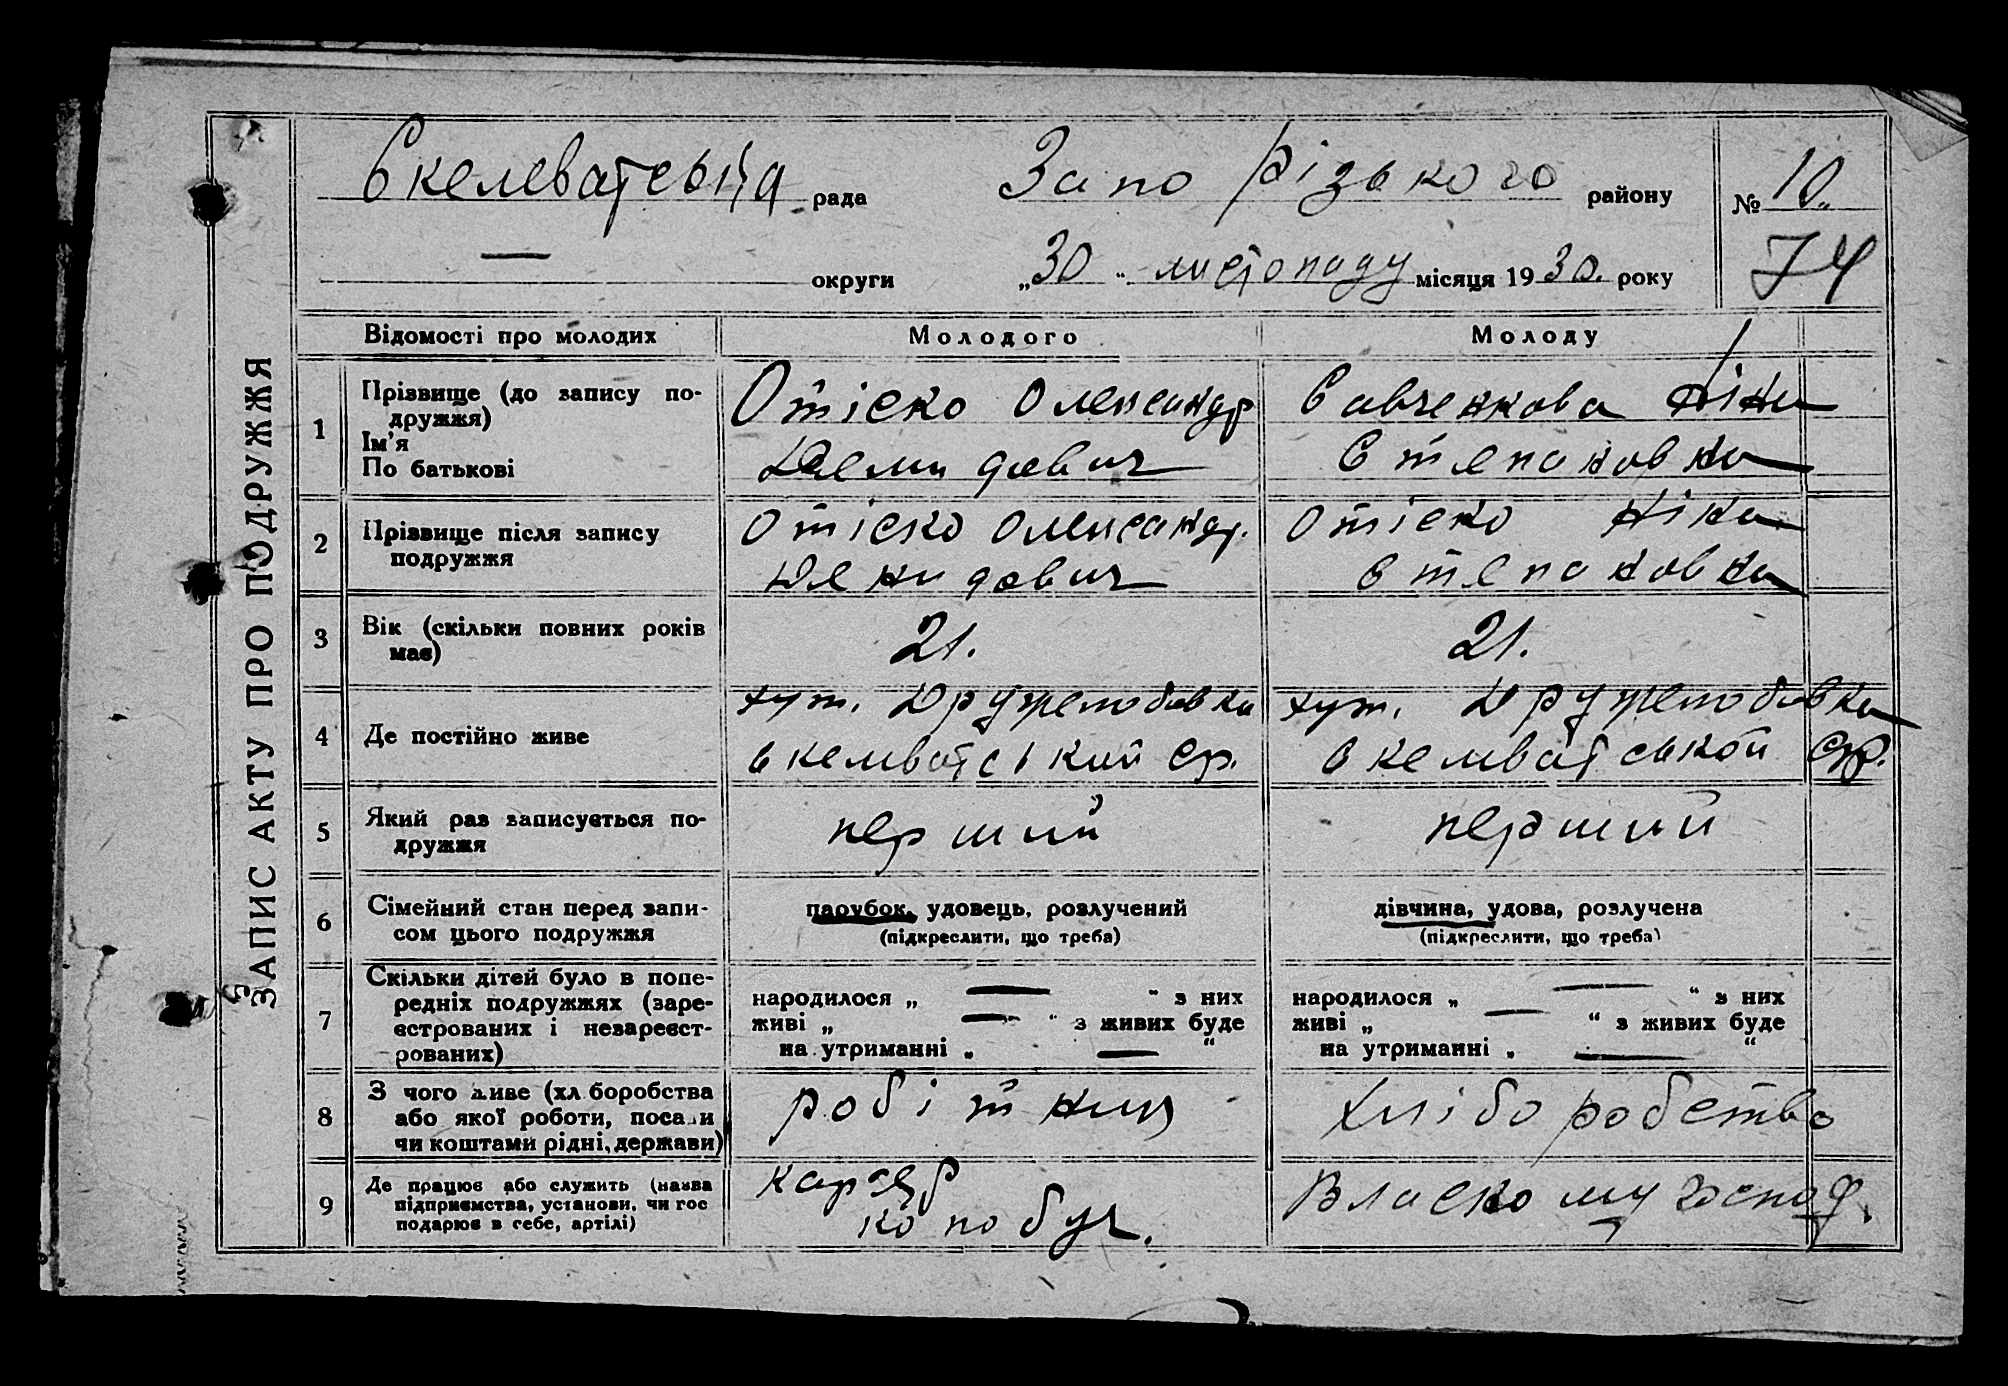 Скелеватська рада Запорізького району № 10.
— округи „30“ листопаду місяця 1930. року 74
ЗАПИС АКТУ ПРО ПОДРУЖЖЯ
Відомості про молодих Молодого Молоду
1 Прізвище (до запису по-
дружжя)
Ім'я
По батькові
Отіско Олександр
Демидович
Савченкова Ніна
Степановна
2 Прізвище після запису
подружжя
Отіско Олександр.
Демидович
Отіско Ніна
Степановна
3 Вік (скільки повних років
має)
21.
21.
4 Де постійно живе
хут. Дружелюбовка
Скелватський ср.
хут. Дружелюбовка
Скелватської ср.
5 Який раз записується по-
дружжя
перший
перший
6 Сімейний стан перед запи-
сом цього подружжя
парубок, удовець, розлучений
(підкреслити, що треба)
дівчина, удова, розлучена
(підкреслити, що треба)
7 Скільки дітей було в попе-
редніх подружжях (заре-
єстрованих і незареєст-
рованих)
народилося „ — “ з них
живі „ — “ з живих буде
на утриманні „ — “
народилося „ — “ з них
живі „ — “ з живих буде
на утриманні „ — “
8 З чого живе (хл боробства
або якої роботи, посади
чи коштами рідні, держави)
робітник
хліборобство
9 Де працює або служить (назва
підприємства, установи, чи гос
подарює в себе, артілі)
карєр
Власному господ.